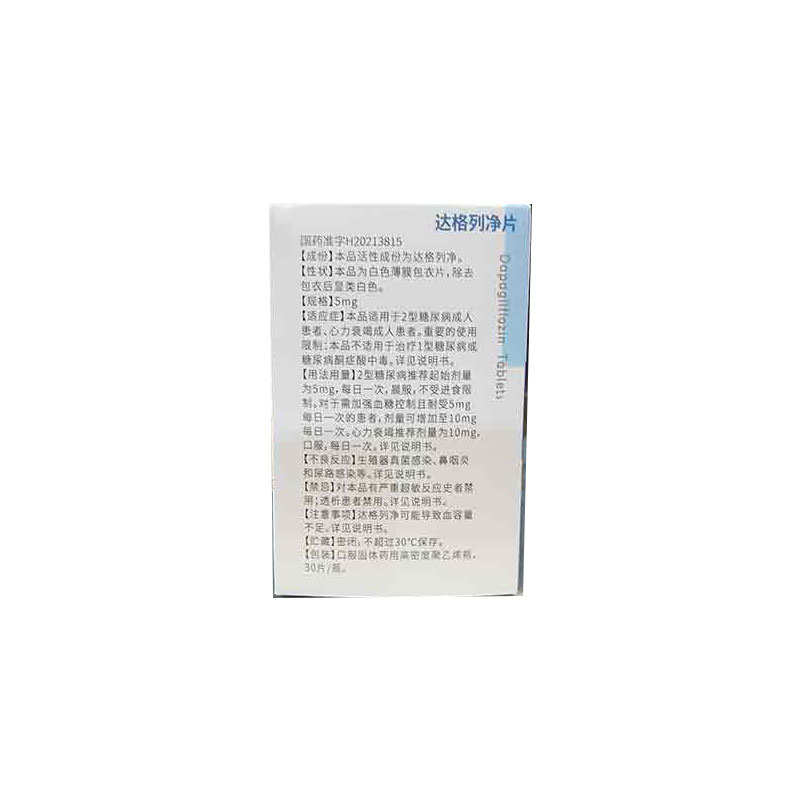 达格列净片
Dapagliflozin Tablets
国药准字H20213815
【成份】本品活性成份为达格列净。
【性状】本品为白色薄膜包衣片，除去
包衣后显类白色。
【规格】5mg
【适应症】本品适用于2型糖尿病成人
患者、心力衰竭成人患者。重要的使用
限制：本品不适用于治疗1型糖尿病或
糖尿病酮症酸中毒。详见说明书。
【用法用量】2型糖尿病推荐起始剂量
为5mg，每日一次，晨服，不受进食限
制。对于需加强血糖控制且耐受5mg
每日一次的患者，剂量可增加至10mg
每日一次。心力衰竭推荐剂量为10mg，
口服，每日一次。详见说明书。
【不良反应】生殖器真菌感染、鼻咽炎
和尿路感染等。详见说明书。
【禁忌】对本品有严重超敏反应史者禁
用；透析患者禁用。详见说明书。
【注意事项】达格列净可能导致血容量
不足。详见说明书。
【贮藏】密闭，不超过30℃保存。
【包装】口服固体药用高密度聚乙烯瓶，
30片/瓶。